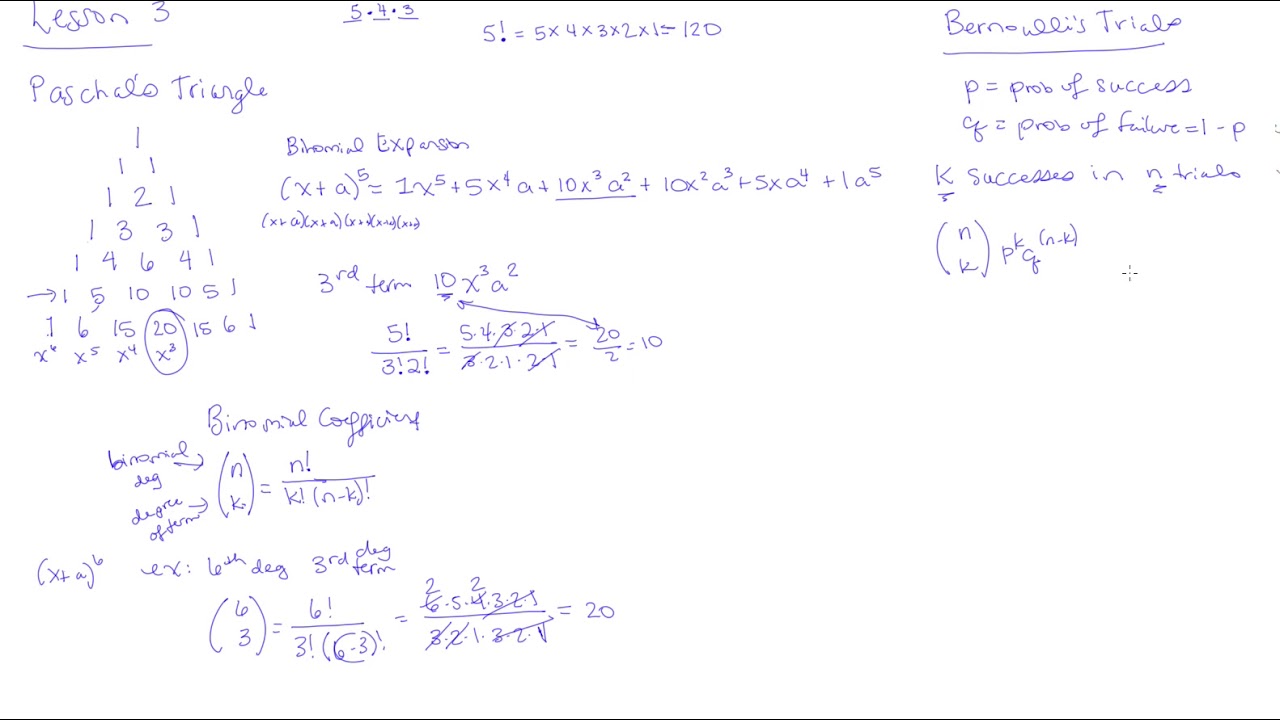 Lesson 3
5·4·3
5! = 5×4×3×2×1 = 120
Paschal's Triangle
1
1 1
1 2 1
1 3 3 1
1 4 6 4 1
→ 1 5 10 10 5 1
1 6 15 20 15 6 1
x⁶ x⁵ x⁴ x³
Binomial Expansion
(x+a)⁵ = 1x⁵ + 5x⁴a + 10x³a² + 10x²a³ + 5xa⁴ + 1a⁵
(x+a)(x+a)(x+a)(x+a)(x+a)
3rd term 10x³a²
5!/3!2! = 5·4·3·2·1/3·2·1·2·1 = 20/2 = 10
Binomial Coefficient
binomial deg →
degree of term →
(n k) = n!/k!(n-k)!
(x+a)⁶ ex: 6th deg 3rd deg term
(6 3) = 6!/3!(6-3)! = 6·5·4·3·2·1/3·2·1·3·2·1 = 20
2 2
Bernoulli's Trials
p = prob of success
q = prob of failure = 1 - p
k successes in n trials
(n k) p^k q^(n-k)